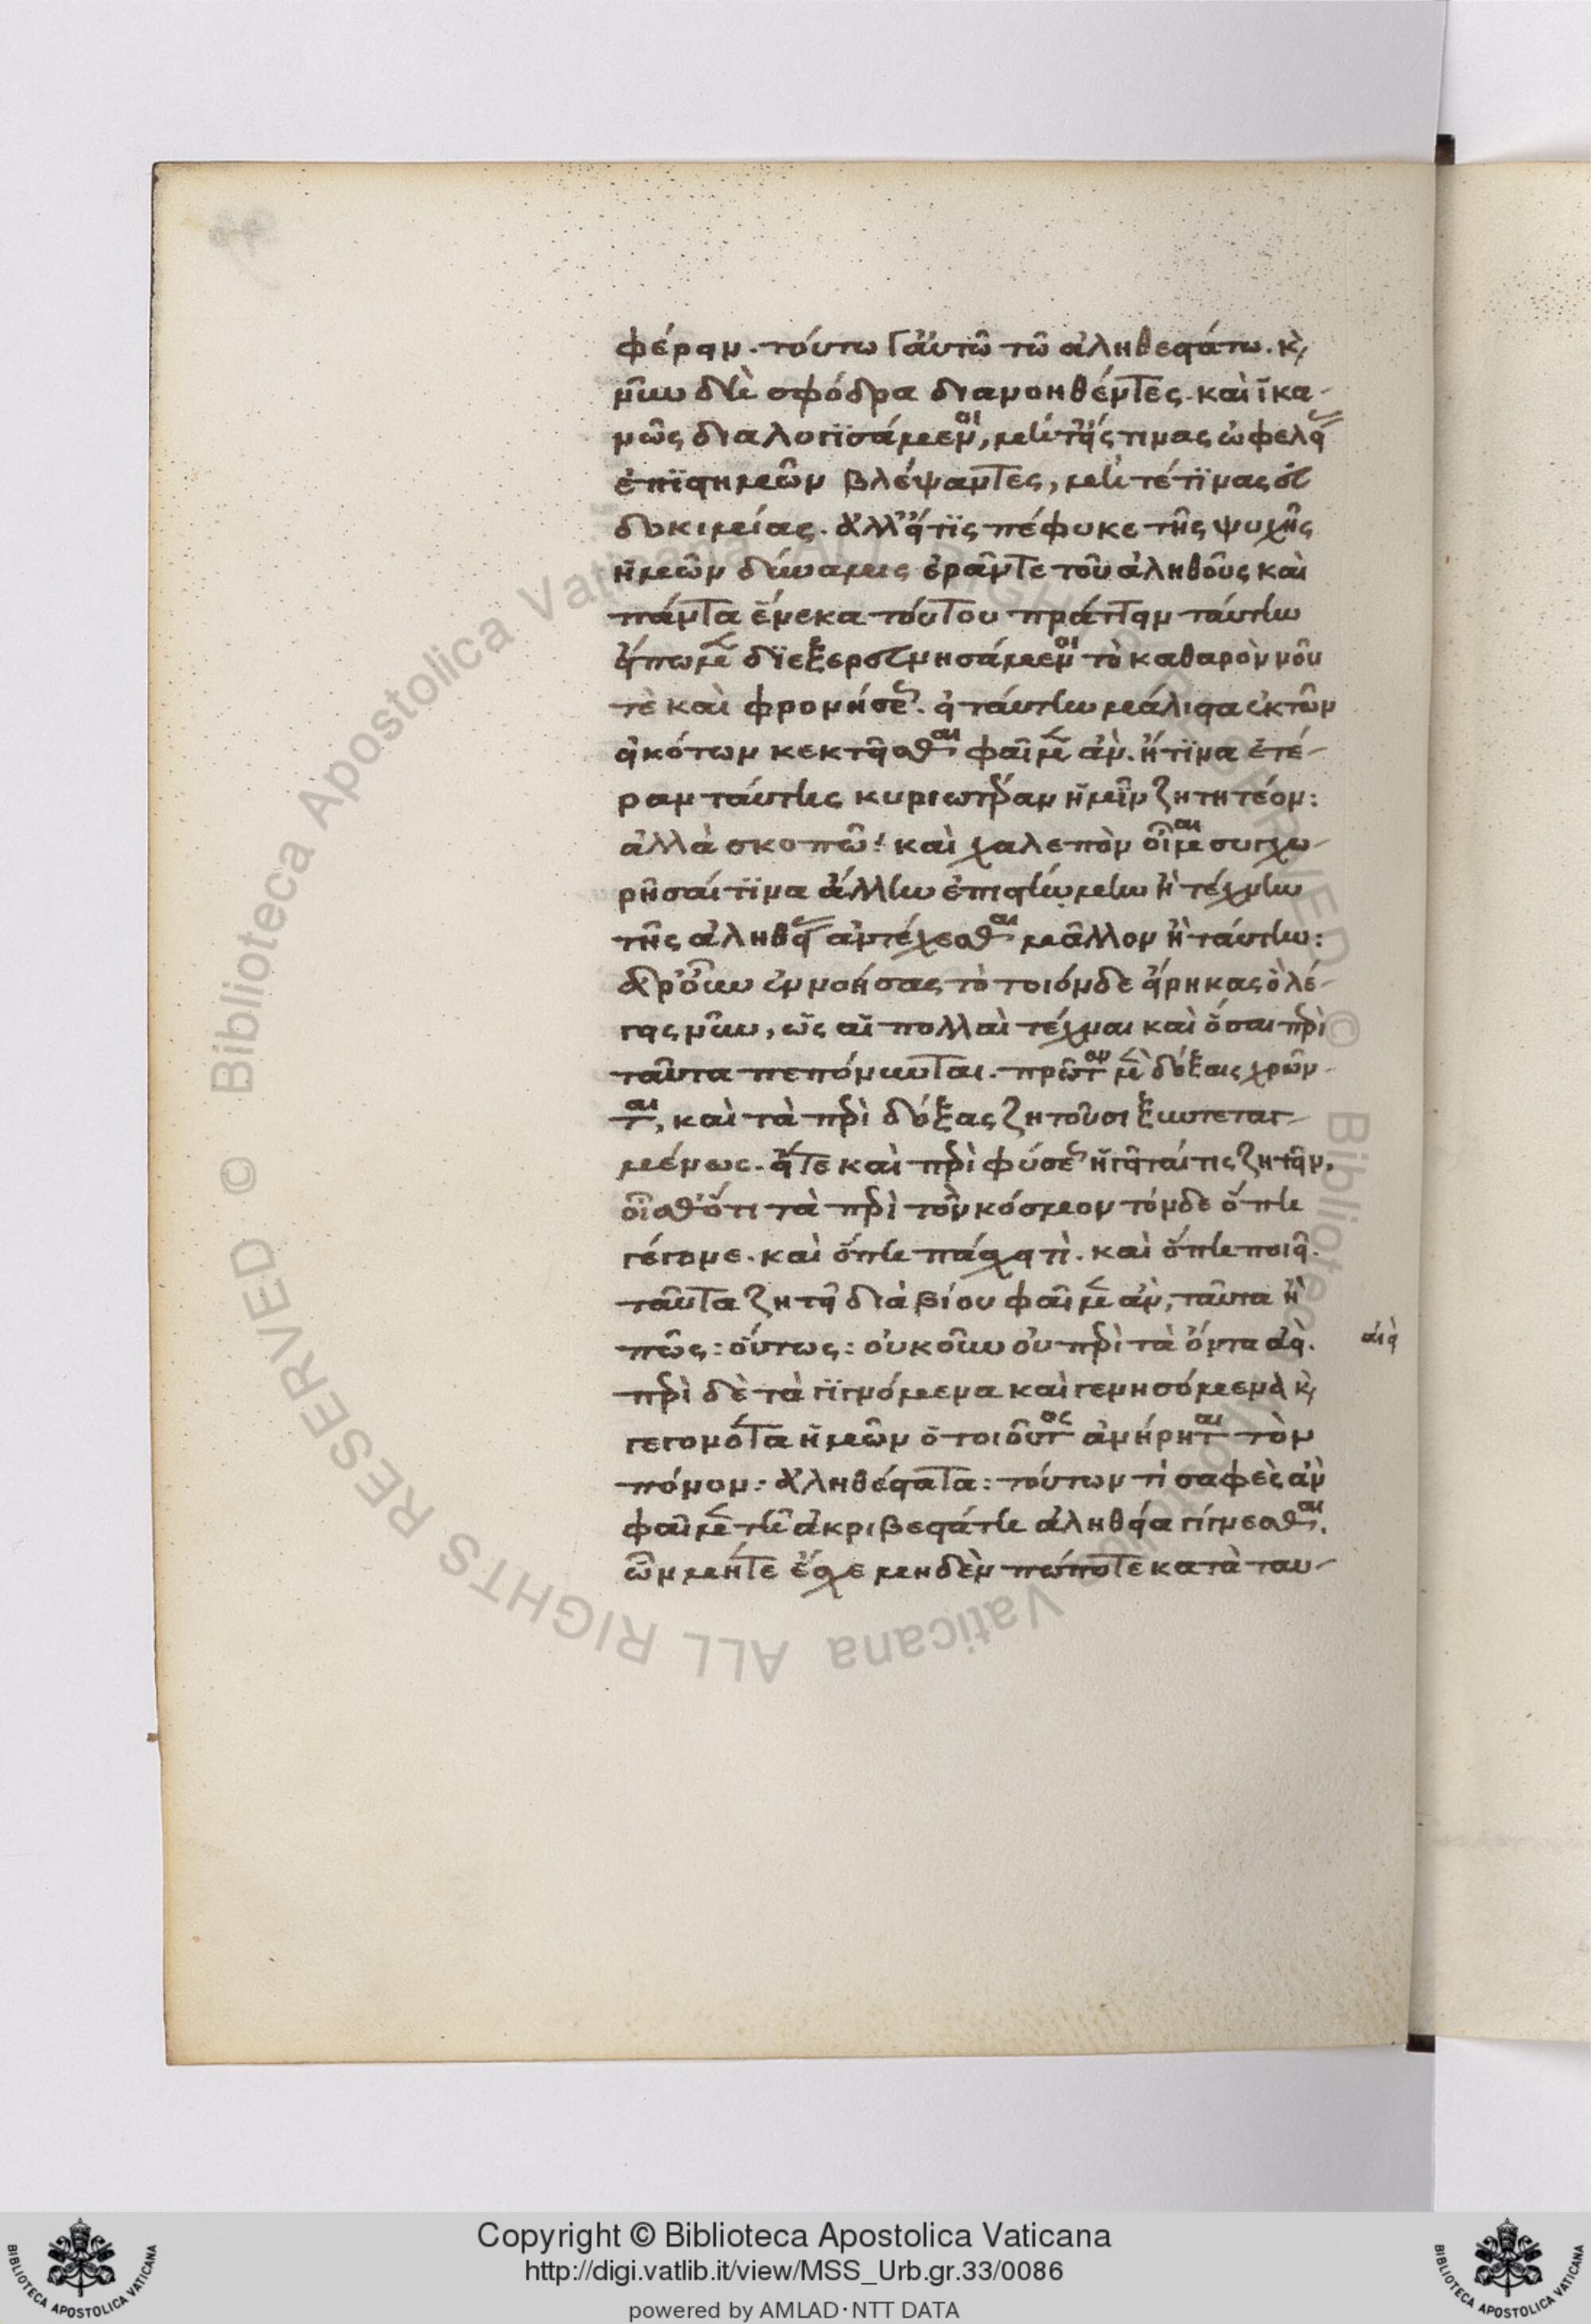 φέρειν. τούτω γ' αὐτῶ τῶ ἀληθεστάτω. κ(αὶ)
νῦν δὴ σφόδρα διανοηθέντες. καὶ ἱκα-
νῶς διαλογισάμενοι, μὴ τῆς τινας ὠφελείας
ἐπιστημῶν βλέψαντες, μὴ τέ τινας εὐ
δοκιμίας. ἀλλ' εἴ τις πέφυκε τῆς ψυχῆς
ἡμῶν δύναμις ἐρᾶν τε τοῦ ἀληθοῦς καὶ
πάντα ἕνεκα τούτου πράττειν ταύτην
εἴπωμεν διεξερευνησάμενοι τὸ καθαρὸν νοῦ
τὲ καὶ φρονήσεως. εἰ ταύτην μάλιστα ἐκ τῶν
εἰκότων κεκτῆσθαι φαῖμεν ἂν. ἤ τινα ἑτέ-
ραν ταύτης κυριωτέραν ἡμῖν ζητητέον:
ἀλλὰ σκοπῶ: καὶ χαλεπὸν οἶμαι συγχω-
ρῆσαί τινα ἄλλην ἐπιστήμην ἢ τέχνην
τῆς ἀληθείας ἀντέχεσθαι μᾶλλον ἢ ταύτην:
ἆρ' οὖν ἐννοήσας τὸ τοιόνδε εἴρηκας ὃ λέ-
γεις νῦν, ὡς αἱ πολλαὶ τέχναι καὶ ὅσαι περὶ
ταῦτα πεπόνηνται. πρῶτον μὲν δόξαις χρῶν-
ται, καὶ τὰ περὶ δόξας ζητοῦσι ξυντεταγ-
μένως. εἴτε καὶ περὶ φύσεως ἡγεῖταί τις ζητεῖν.
οἶσθ' ὅτι τὰ περὶ τὸν κόσμον τόνδε ὅπη
γέγονε. καὶ ὅπη πάσχει τὶ. καὶ ὅπη ποιεῖ.
ταῦτα ζητεῖ διὰ βίου φαῖμεν ἂν, ταῦτα ἢ
πῶς: οὕτως: οὐκοῦν οὐ περὶ τὰ ὄντα ἀεὶ. αἰεὶ
περὶ δὲ τὰ γιγνόμενα καὶ γενησόμενα κ(αὶ)
γεγονότα ἡμῶν ὁ τοιοῦτος ἀνήρηται τὸν
πόνον: ἀληθέστατα: τούτων τὶ σαφὲς ἂν
φαῖμεν τῆ ἀκριβεστάτη ἀληθεία γίγνεσθαι.
ὧν μήτε ἔσχε μηδὲν πώποτε κατὰ ταυ-
Copyright © Biblioteca Apostolica Vaticana
http://digi.vatlib.it/view/MSS_Urb.gr.33/0086
powered by AMLAD·NTT DATA